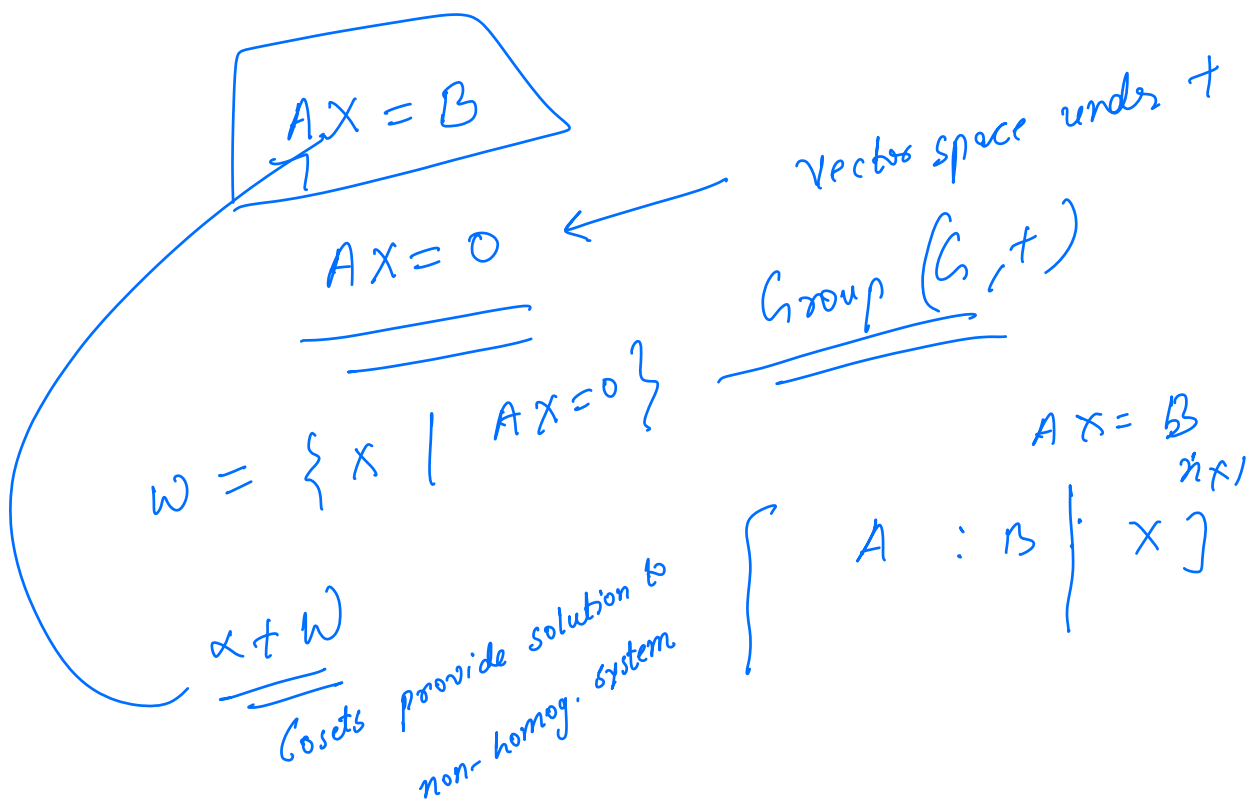 AX = B
vector space under +
AX = 0
Group (G, +)
W = { X | AX = 0 }
AX = B
n×1
[ A : B | X ]
α + W
Cosets provide solution to
non-homog. system